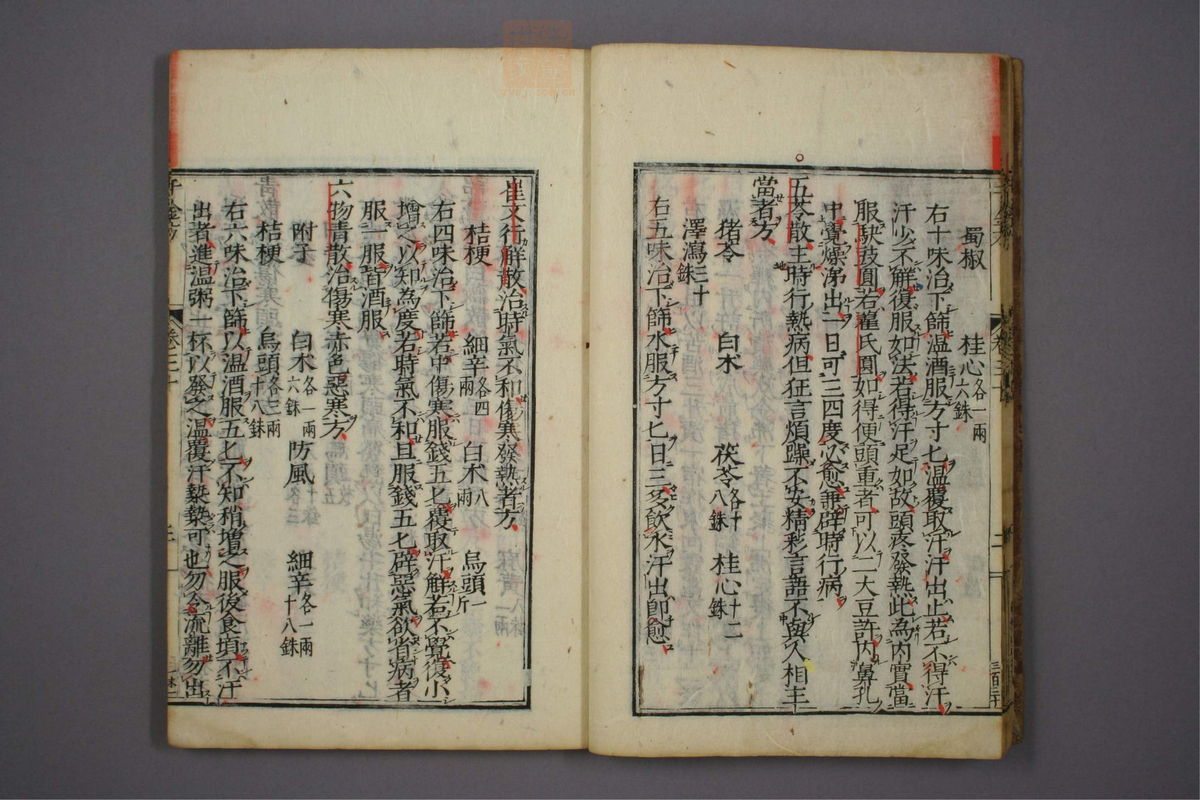 蜀椒 桂心各一兩六銖
右十味治下篩溫酒服方寸匕溫覆取汗汗出止若不得汗
汗少不解復服如法若得汗足如故頭疼發熱此為內實當
服駃豉圓若藿氏圓如得便頭重者可以二大豆許內鼻孔
中覺燥涕出一日可三四度必愈兼辟時行病
五苓散主時行熱病但狂言煩躁不安精彩言語不與人相主
當者方
猪苓 白朮 茯苓各十八銖 桂心十二銖
澤瀉三十銖
右五味治下篩水服方寸匕日三多飲水汗出卽愈
崔文行解散治時氣不和傷寒發熱者方
桔梗 細辛各四兩 白朮八兩 烏頭一斤
右四味治下篩若中傷寒服錢五匕覆取汗解若不覺復小
增之以知為度若時氣不和旦服錢五匕辟惡氣欲省病者
服一服皆酒服
六物青散治傷寒赤色惡寒方
附子 白朮各一兩六銖 防風 細辛各一兩十八銖
桔梗 烏頭各三兩十八銖
右六味治下篩以溫酒服五匕不知稍增之服後食頃不汗
出者進溫粥一杯以發之溫覆汗漐漐可也勿令流離勿出
千金方 卷三十 二